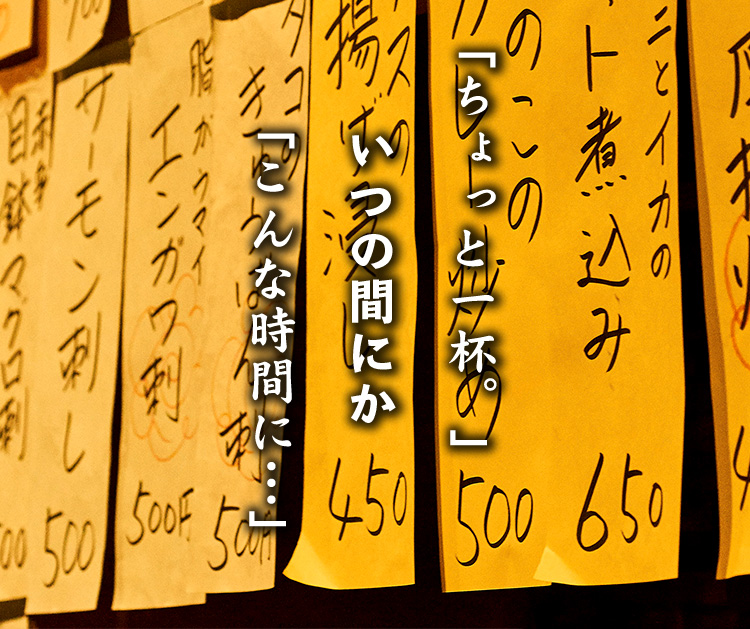 「ちょっと一杯。」
いつの間にか
「こんな時間に…」
ニとイカの
ト煮込み
650
のこの
炒め
500
スの
揚げ浸し
450
タコの
刺
500円
脂がウマイ
エンガワ刺
500円
サーモン刺し
500
目鉢マグロ刺
500
700